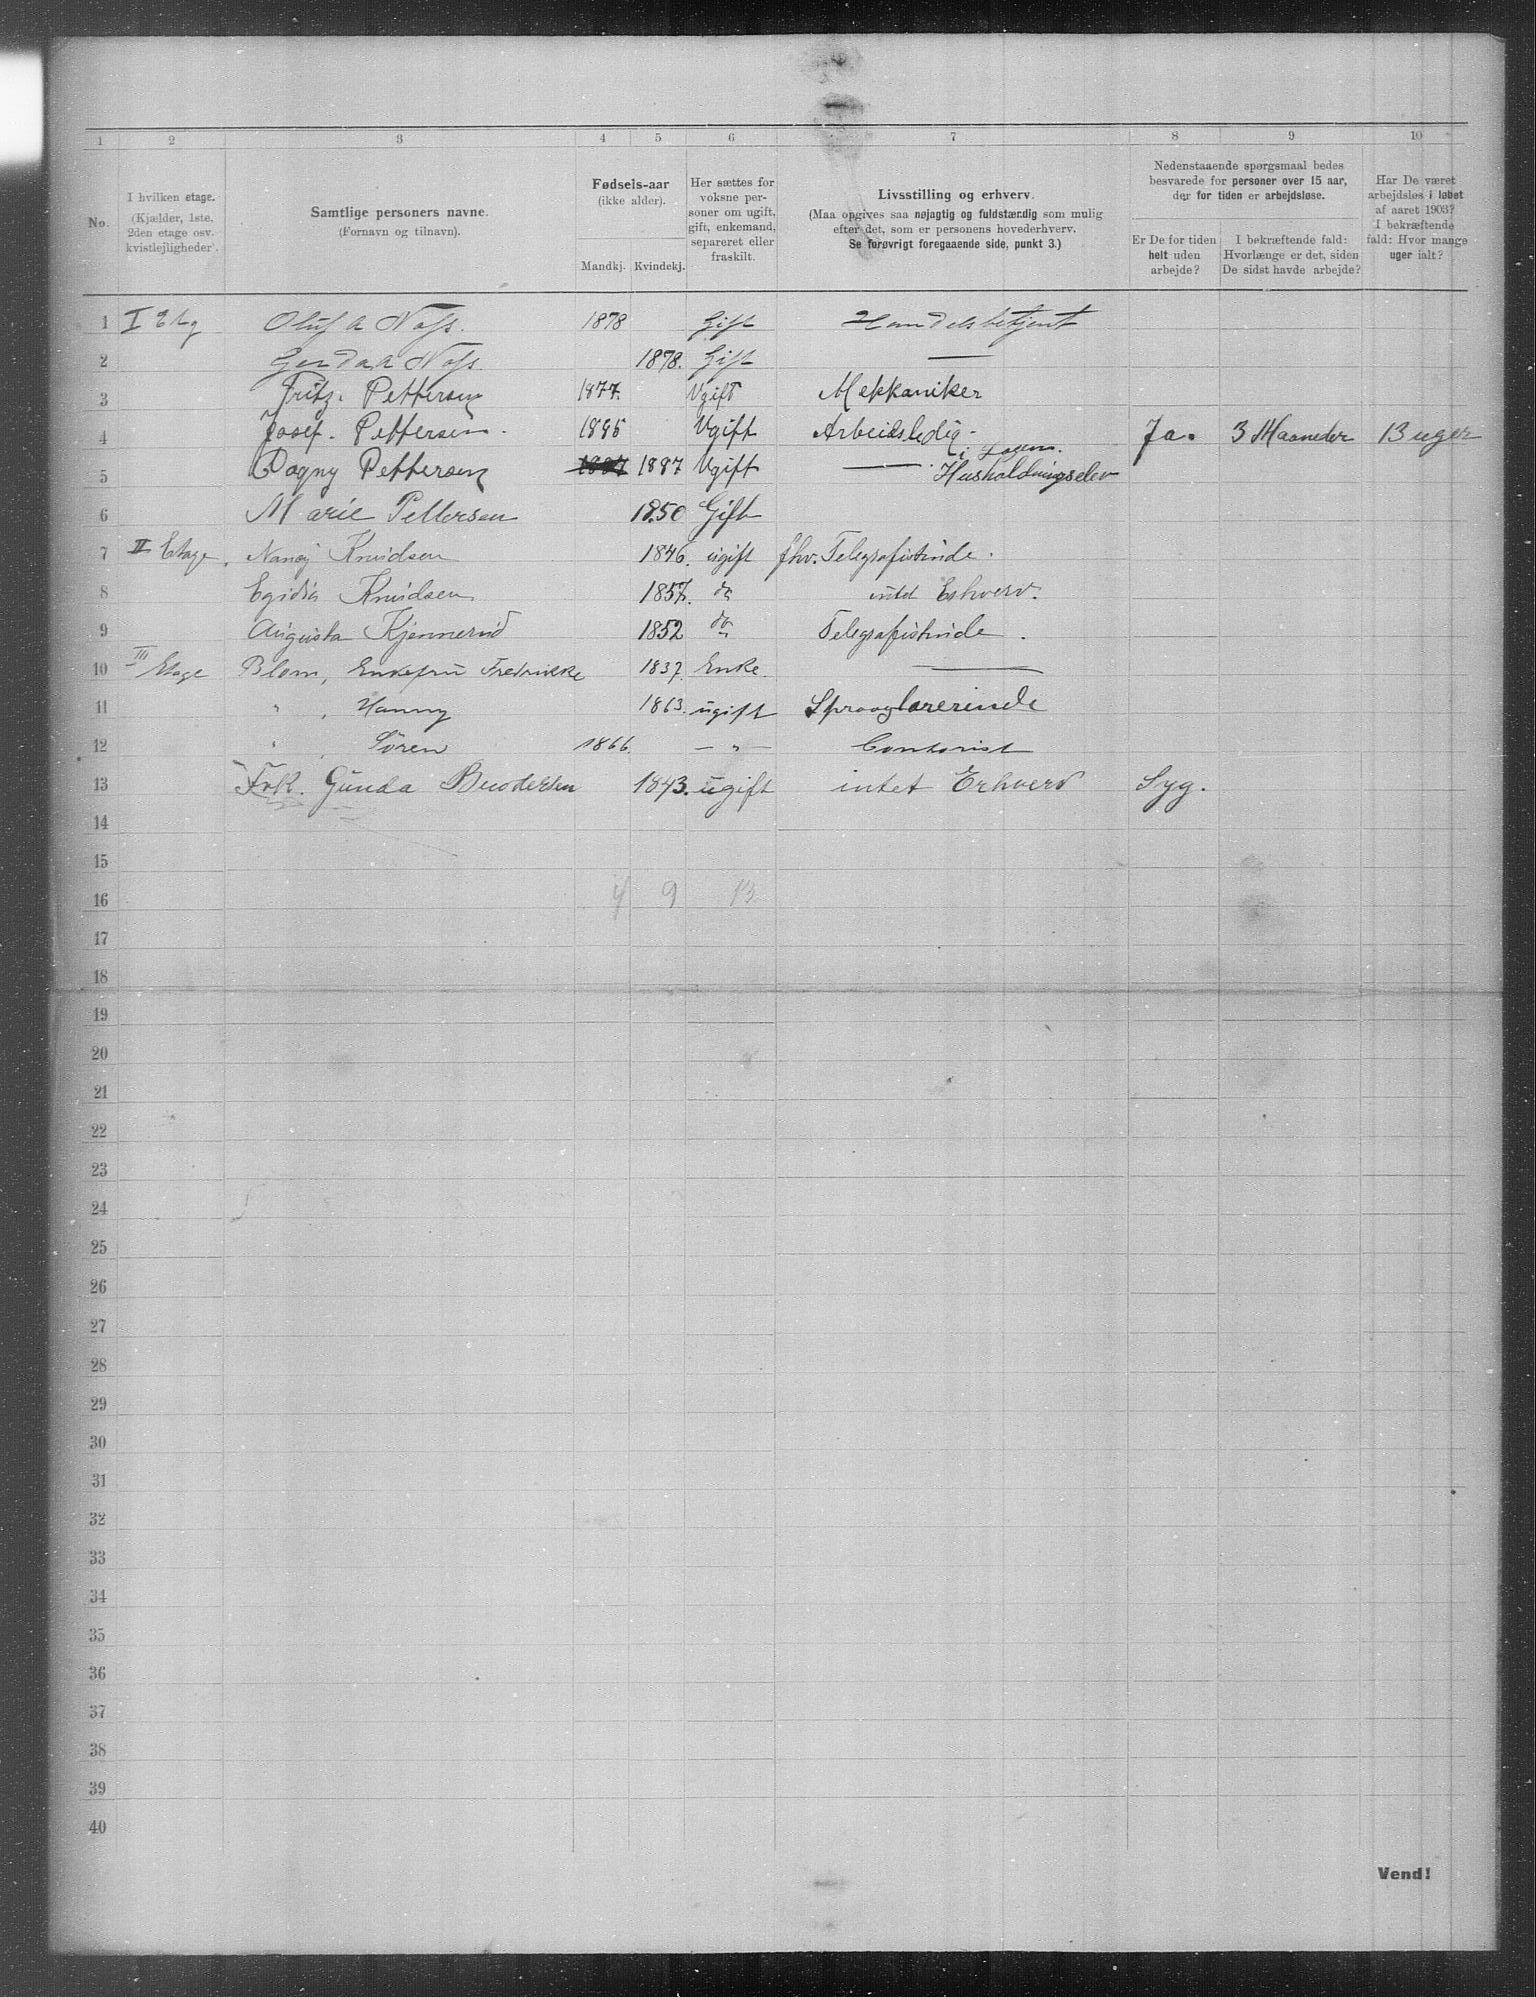 1 2 3 4 5 6 7 8 9 10
No.
I hvilken etage.
(Kjælder, 1ste,
2den etage osv.
kvistlejligheder).
Samtlige personers navne.
(Fornavn og tilnavn).
Fødsels-aar
(ikke alder).
Mandkj. Kvindekj.
Her sættes for
voksne per-
soner om ugift,
gift, enkemand,
separeret eller
fraskilt.
Livsstilling og erhverv.
(Maa opgives saa nøjagtig og fuldstændig som mulig
efter det, som er personens hovederhverv.
Se forøvrigt foregaaende side, punkt 3.)
Nedenstaaende spørgsmaal bedes
besvarede for personer over 15 aar,
der for tiden er arbejdsløse.
Er De for tiden
helt uden
arbejde?
I bekræftende fald:
Hvorlænge er det, siden
De sidst havde arbejde?
Har De været
arbejdsløs i løbet
af aaret 1903?
I bekræftende
fald: Hvor mange
uger ialt?
1 I Etg Oluf A Næss. 1878 Gift Handelsbetjent
2 Gerda A Næss 1878. Gift —
3 Fritz. Pettersen 1877. Ugift Mekkaniker
4 Josef. Pettersen. 1885 Ugift Arbeidsledig. Ja. 3 Maaneder 13 uger
5 Dagny Pettersen 1887 1887 Ugift — Husholdningselev
6 Marie Pettersen 1850 Gift
7 II Etage. Nancy Knudsen 1846. ugift fhv. Telegrafistinde.
8 Egidia Knudsen 1857. do intet Erhverv.
9 Augusta Kjennerud 1852 do Telegrafistinde.
10 III Etage Blom, Enkefru Fredrikke 1837. Enke. —
11 " , Hanny 1863. ugift Sproglærerinde
12 " , Søren 1866. — " — Contorist
13 Frk. Gunda 1843. ugift intet Erhverv Syg.
14
15
16 4 9 13
17
18
19
20
21
22
23
24
25
26
27
28
29
30
31
32
33
34
35
36
37
38
39
40
Vend!